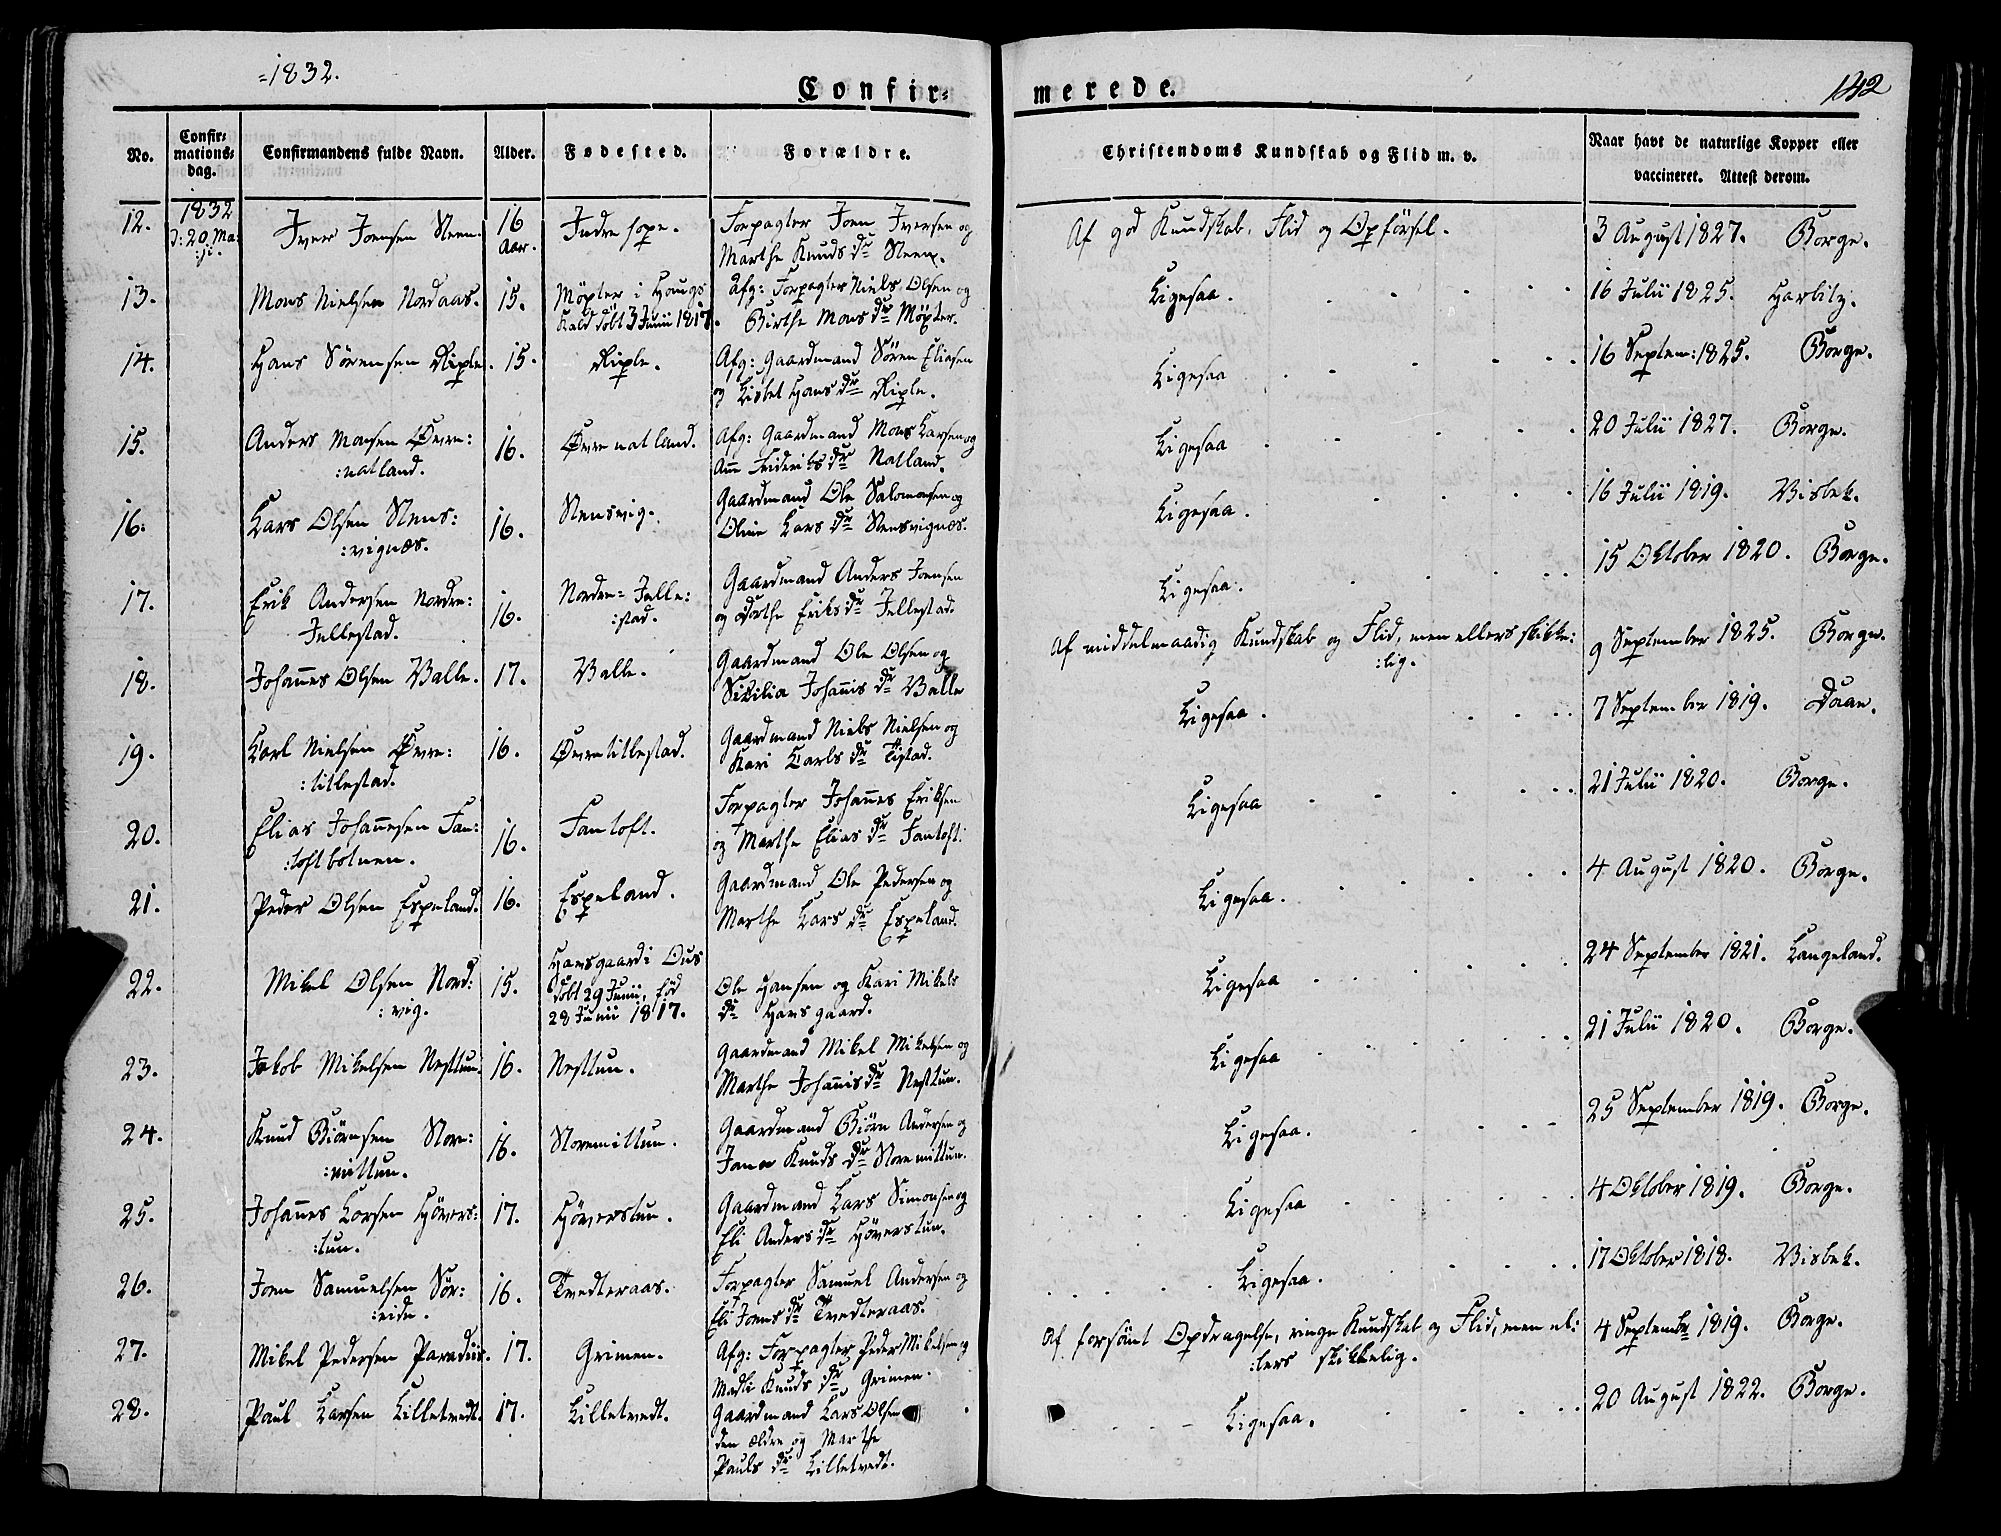 =1832.
Confir=
merede.
142
No.
Confir=
mations=
dag.
Confirmandens fulde Navn.
Alder.
Fødested.
Forældre.
Christendoms Kundskab og Flid m. v.
Naar havt de naturlige Kopper eller
vaccineret. Attest derom.
12.
1832
d: 20 Ma:
:ji.
Iver Joensen Steen.
16
Aar.
Indre sope.
Forpagter Joen Iversen og
Marthe Knuds dr Steen.
Af god Kundskab, Flid og Opförsel.
3 August 1827. Borge.
13.
Mons Nielsen Nordaas.
15.
Møgster i Hougs
Kald döbt 3 Junii 1817.
Afg: Forpagter Niels Olsen og
Birthe Mons dr Møgster.
Ligesaa.
16 Julii 1825. Harbitz.
14.
Hans Sörensen Riple.
15.
Riple.
Afg: Gaardmand Sören Eliasen
og Lisbet Hans dr Riple.
Ligesaa
16 Septem: 1825. Borge.
15.
Anders Monsen Øvre:
:natland.
16.
Øvre natland.
Afg: Gaardmand Mons Larsen og
Ann Frideriks dr Natland.
Ligesaa
20 Julii 1827. Borge.
16.
Lars Olsen Stens:
:vignæs.
16.
Stensvig.
Gaardmand Ole Salomonsen og
Oline Lars dr Stensvignæs.
Ligesaa.
16 Julii 1819. Visbek.
17.
Erik Andersen Nordre:
Jellestad.
16.
Nordre= Jelle:
:stad.
Gaardmand Anders Joensen
og Dorthe Eriks dr Jellestad.
Ligesaa.
15 Oktober 1820. Borge.
18.
Johannes Olsen Valle.
17.
Valle.
Gaardmand Ole Olsen og
Sicilia Johannis dr Valle
Af middelmaadig Kundskab og Flid, men ellers skikke:
:lig.
9 September 1825. Borge.
19.
Karl Nielsen Øvre:
:titlestad.
16.
Øvretitlestad.
Gaardmand Niels Nielsen og
Kari Carls dr Tistad.
Ligesaa.
7 September 1819. Daae.
20.
Elias Johannesen Fan:
:toftbotnen.
16.
Fantoft.
Forpagter Johannes Eriksen
og Marthe Elias dr Fantoft.
Ligesaa
21 Julii 1820. Borge.
21.
Peder Olsen Espeland.
16.
Espeland.
Gaardmand Ole Pedersen og
Marthe Lars dr Espeland.
Ligesaa.
4 August 1820. Borge.
22.
Mikel Olsen Nord:
:vig.
15.
Hansgaard i Ous
döbt 29 Junii, föd
28 Junii 1817.
Ole Hansen og Kari Mikels
dr Hansgaard.
Ligesaa
24 September 1821. Langeland.
23.
Jakob Mikelsen Nesttun.
16.
Nesttun.
Gaardmand Mikel Mikelsen og
Marthe Johannis dr Nesttun.
Ligesaa
21 Julii 1820. Borge.
24.
Knud Biörnsen Store:
:mittun.
16.
Storemittun.
Gaardmand Biörn Andersen og
Jana Knuds dr Storemittun.
Ligesaa.
25 September 1819. Borge.
25.
Johannes Larsen Hövers:
:tun.
17.
Höverstun.
Gaardmand Lars Simonsen og
Eli Anders dr Höverstun.
Ligesaa
4 Oktober 1819. Borge.
26.
Joen Samuelsen Sör:
:eide.
16.
Tvedteraas.
Forpagter Samuel Andersen og
Eli Joens dr Tvedteraas.
Ligesaa.
17 Oktober 1818. Visbek.
27.
Mikel Pedersen Paradiis.
17.
Grimen.
Afg: Forpagter Peder Mikelsen og
Madli Knuds dr Grimen.
Af forsömt Opdragelse, ringe Kundskab og Flid, men el:
:lers skikkelig.
4 Septembr 1819. Borge.
28.
Paul Larsen Lilletvedt.
17.
Lilletvedt.
Gaardmand Lars Olsen
den ældre og Marthe
Pauls dr Lilletvedt.
Ligesaa.
20 August 1822. Borge.